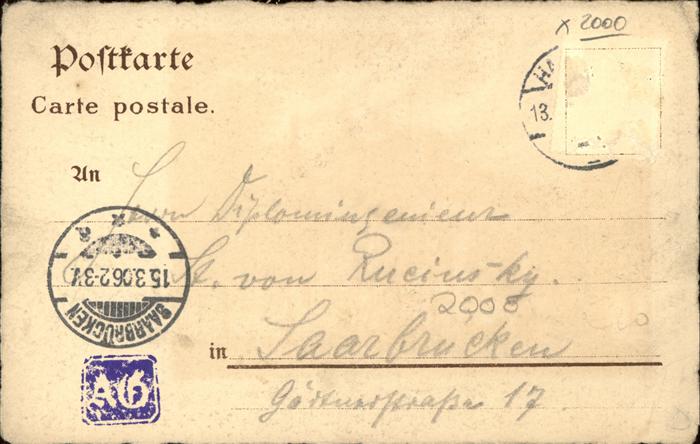 × 2000
Postkarte
Carte postale.
HA
13.
An
Herrn Diplomingenieur
St. von Rucinsky.
15.3.06.2-3V.
SAARBRÜCKEN
2000
in Saarbrücken
Gärtnerstraße 17
AG